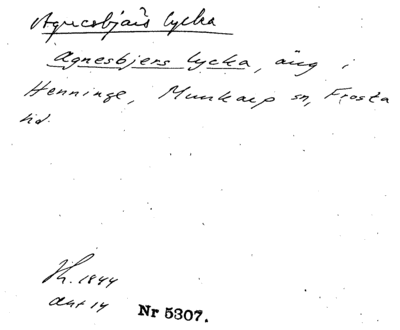 Agnesbjärs lycka
Agnesbjers lycka, äng i
Henninge, Munkarp sn, Frosta
hd.
Th. 1844
akt 14
Nr 5307.